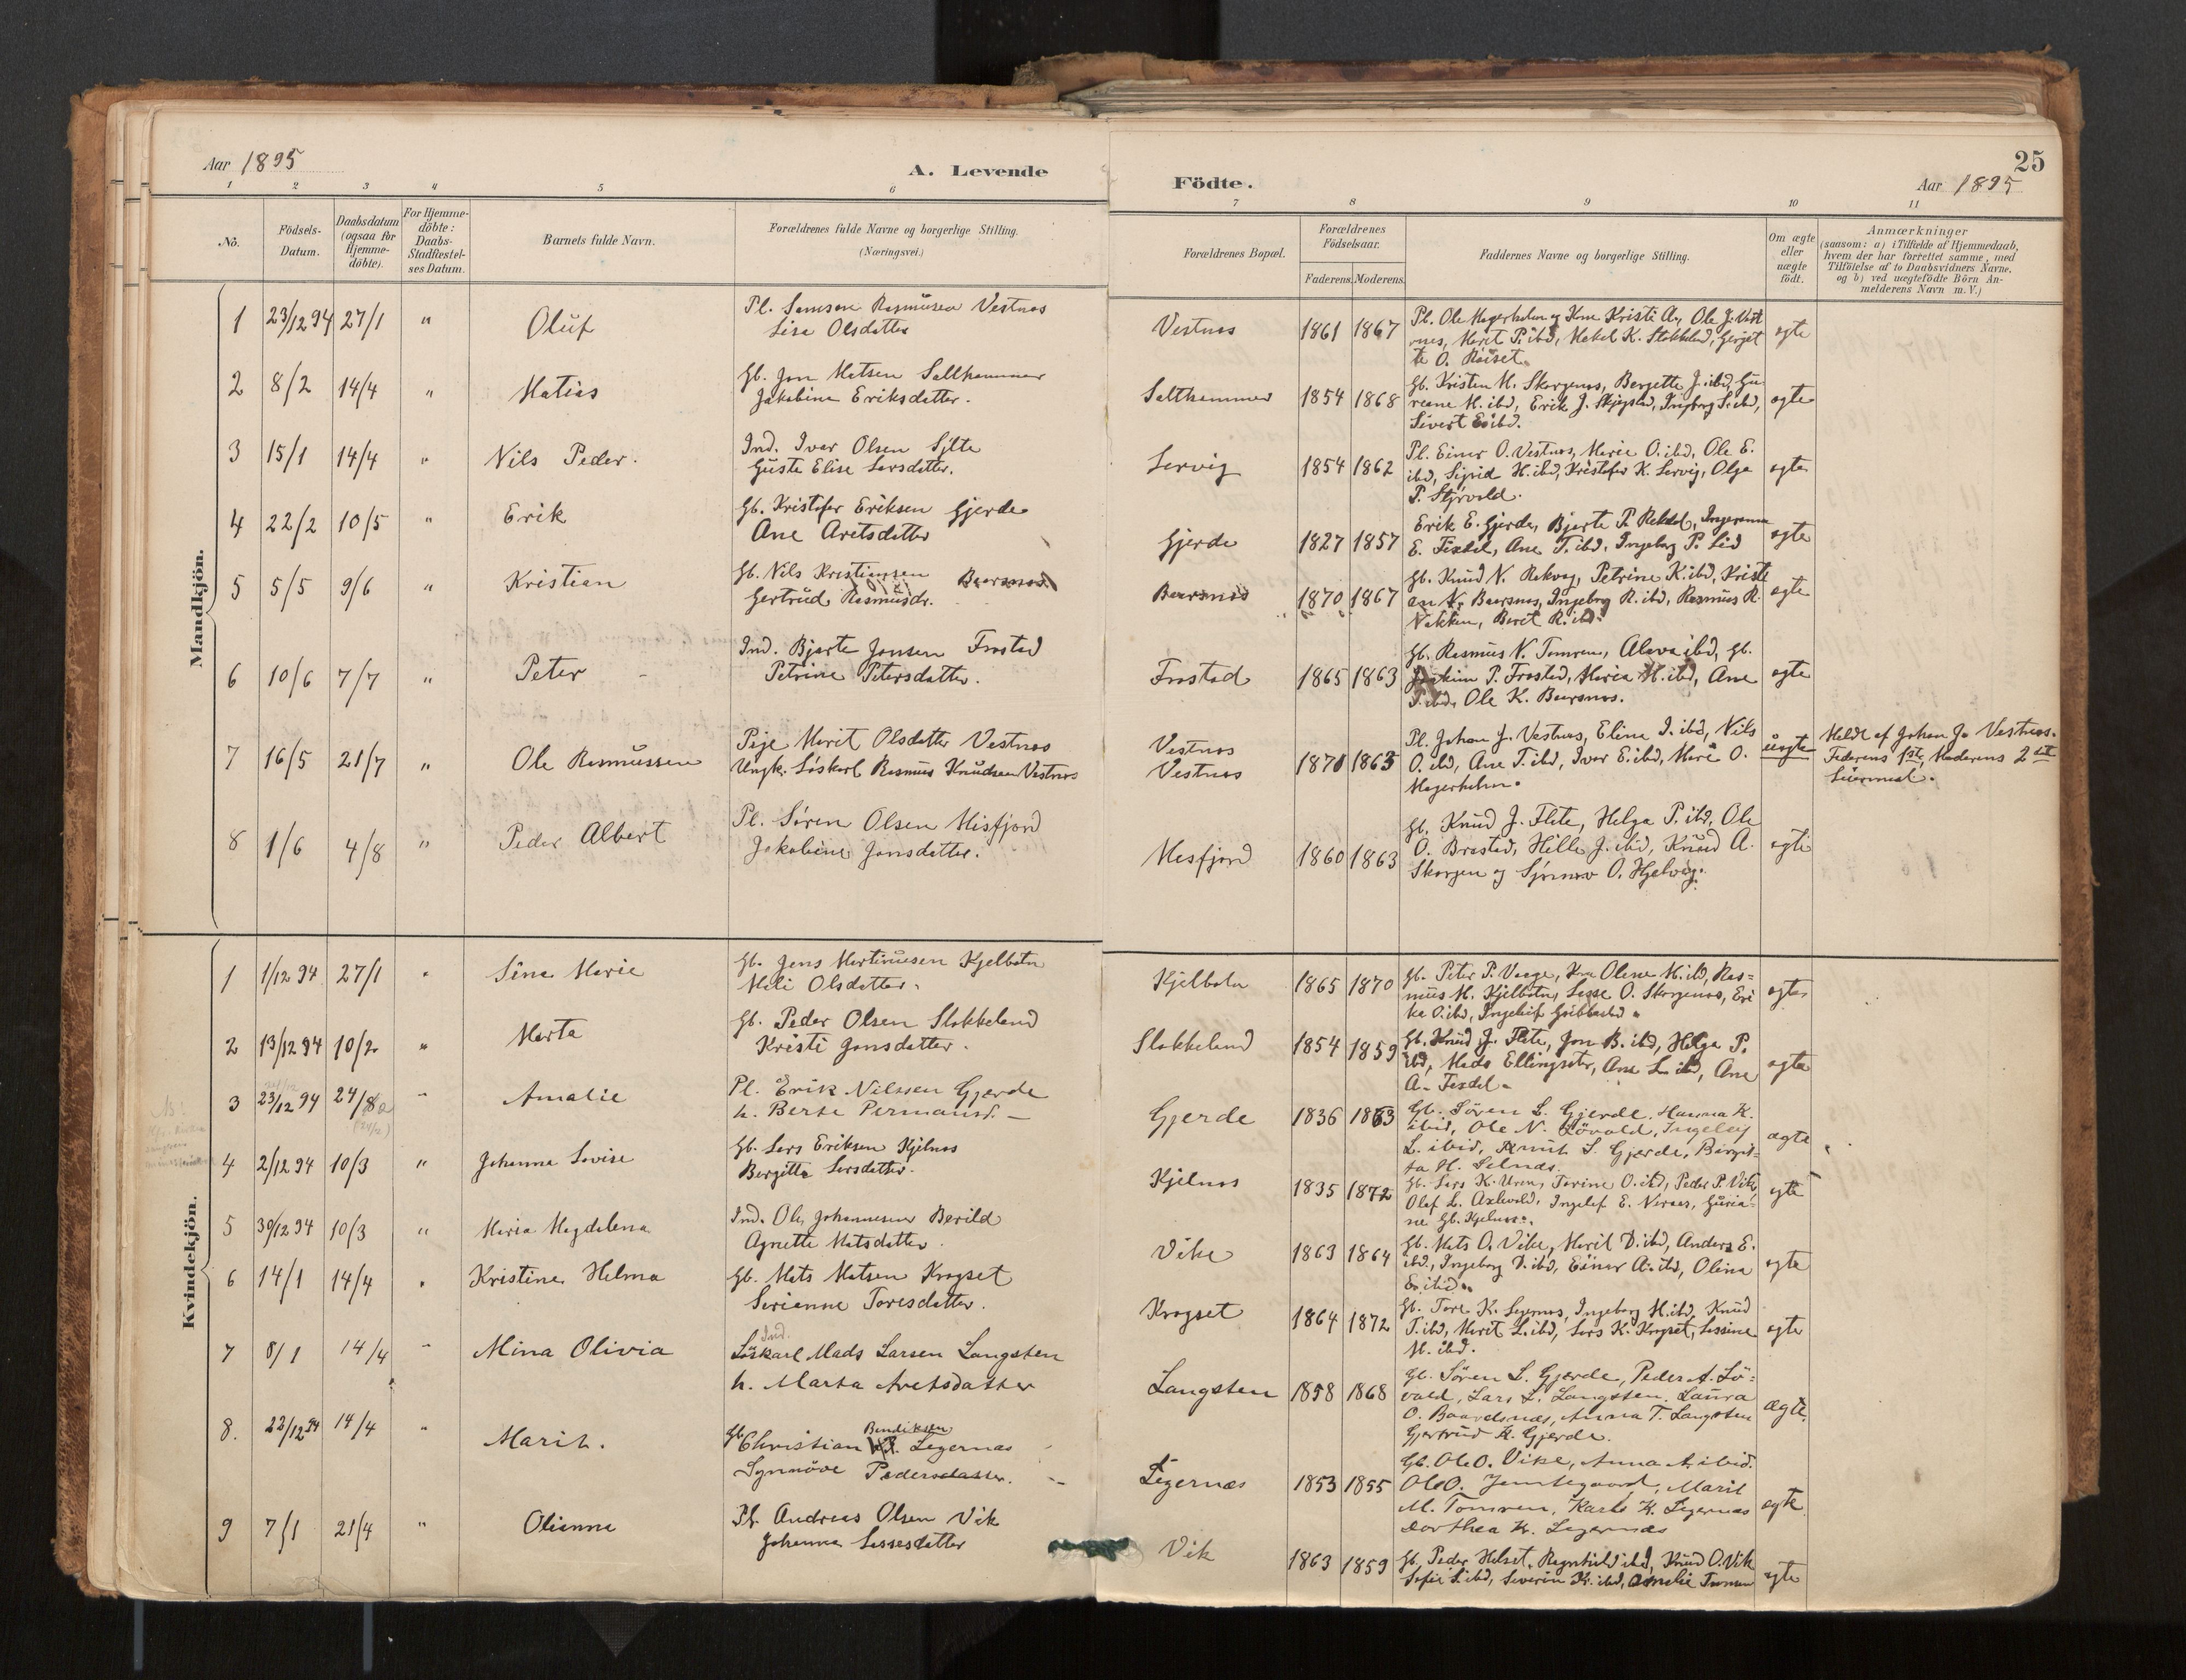 Aar 1895
A. Levende
Födte.
25
Aar 1895
1 2 3 4 5 6 7 8 9 10 11
No.
Födsels-
Datum.
Daabsdatum
(ogsaa for
Hjemme-
döbte).
For Hjemme-
döbte:
Daabs-
Stadfæstel-
ses Datum.
Barnets fulde Navn.
Forældrenes fulde Navne og borgerlige Stilling.
(Næringsvei.)
Forældrenes Bopæl.
Forældrenes
Födselsaar.
Faderens. Moderens.
Faddernes Navne og borgerlige Stilling.
Om ægte
eller
uægte
födt.
Anmærkninger
(saasom: a) i Tilfælde af Hjemmedaab,
hvem der har forrettet samme, med
Tilföielse af to Daabsvidners Navne,
og b) ved uægtefödte Börn An-
melderens Navn m. V.)
Mandkjön.
1 23/12 94 27/1 " Oluf
Pl. Samson Rasmusen Vestnes
Lisa Olsdatter
Vestnes 1861 1867
Pl. Ole Magerholm og Kone Kristi A., Ole J. Vest
nes, Marit P. ibd, Mekel K. Stokkeland,
te O. Råiset.
egte
2 8/2 14/4 " Matias
Gb. Jon Matsen Salthammer
Jakobine Eriksdatter.
Salthammer 1854 1868
Gb. Kristen M. Skorgenes, Bergette J. ibd, Gu-
reane M. ibd, Erik J. Skjegstad, Ingeborg S. ibd,
Sivert E. ibd.
egte
3 15/1 14/4 " Nils Peder.
Ind. Ivar Olsen Sylte
Guste Elise Larsdatter.
Lervig 1854 1862
Pl. Einar O. Vestnes, Marie O. ibd, Ole E.
ibd, Sigrid H. ibd, Kristofer K. Lervig, Olga
P. Styrvold.
egte
4 22/2 10/5 " Erik
Gb. Kristofer Eriksen Gjerde
Ane Aretsdatter
Gjerde 1827 1857
Erik E. Gjerde, Bjerte P. Rekdal, Ingeranna
E. Fixdal, Ane T. ibd, Ingeborg P. Lid
egte
5 5/5 9/6 " Kristian
Gb. Nils Kristiansen Baarsnes
Gertrud Rasmusdr.
Baarsnes 1870 1867
Gb. Knud N. Rekvag, Petrine K. ibd, Kristi
an N. Baarsnes, Ingeborg R. ibd, Rasmus R.
Vakken, Berit R. ibd.
egte
6 10/6 7/7 " Peter
Ind. Bjarte Jonsen Frostad
Petrine Petersdatter.
Frostad 1865 1863
Gb. Rasmus N. Tomren, Alava ibd, Gb.
Joakim P. Frostad, Maria M. ibd, Ane
T. ibd, Ole K. Baarsnes.
egte
7 16/5 21/7 " Ole Rasmussen
Pige Marit Olsdatter Vestnes
Ungk. Löskarl Rasmus Knudsen Vestnes
Vestnes
Vestnes 1870 1865
Pl. Johan J. Vestnes, Eline I. ibd, Nils
O. ibd, Ane T. ibd, Ivar E. ibd, Mari O.
Magerholm.
uegte
Meldt af Johan J. Vestnes.
Faderens 1ste, Moderens 2det
Leiermaal.
8 1/6 4/8 " Peder Albert
Pl. Sören Olsen Misfjord
Jakobine Jonsdatter.
Misfjord 1860 1863
Gb. Knud J. Flate, Helga P. ibd, Ole
O. Brastad, Hille J. ibd, Knud A.
Skorgen og O. Hjelvig.
egte
Kvindekjön.
1 1/12 94 27/1 " Sina Marie
Gb. Jens Martinusen Kjelbotn
Mali Olsdatter.
Kjelbotn 1865 1870
Gb. Peter P. Vaage, Kone Olene M. ibd, Ras=
mus M. Kjelbotn, Lasse O. Skorgenes, Eri
ka O. ibd, Ingeleif Gribbestad
egte
2 13/12 94 10/2 " Marta
Gb. Peder Olsen Stokkeland
Kristi Jonsdatter.
Stokkeland 1854 1859
Gb. Knud J. Flate, Jon B. ibd, Helga P.
ibd, Mads Ellingseter, Ane L. ibd, Ane
A. Fixdal
egte
3 23/12 94 24/8 " Amalie
Pl. Erik Nilssen Gjerde
h. Berte Permansd.
Gjerde 1836 1863
Gb. Sören L. Gjerde, Hanna K.
ibid, Ole N. Lövold, Ingeleiv
L. ibid, Knut L. Gjerde, Bergit-
ta H. Selnæs.
ægte
4 2/12 94 10/3 " Johanna Lovise
Gb. Lars Eriksen Kjelnes
Bergitte Larsdatter.
Kjelnes 1835 1872
Gb. Lars K. Uren, Tarine O. ibd, Peder P. Vike,
Olaf L. Axlevold, Ingelef E. Neraas, Guria-
ne Gb. Kjelnes.
egte
5 30/12 94 10/3 " Maria Magdalena
Ind. Ole Johannesen Berild
Agnette Matsdatter.
Vike 1863 1864
Gb. Mats O. Vike, Marit D. ibd, Anders E.
ibd., Ingeborg D. ibd, Einar A. ibd, Olina
E. ibid.
egte
6 14/1 14/4 " Kristine Helma
Gb. Mats Matsen Krogset
Serianne Toresdatter.
Krogset 1864 1872
Gb. Tore K. Legernes, Ingeborg M. ibd, Knud
T. ibd, Marit L. ibd, Lars K. Krogset, Lassine
M. ibd.
egte
7 8/1 14/4 " Mina Olivia
Ind.
Löskarl Mads Larsen Langsten
h. Marta Aretsdatter
Langsten 1858 1868
Gb. Sören L. Gjerde, Peder A. Lö-
vold, Lars L. Langsten, Laura
O. Baardsnæs, Anna T. Langsten
Gjertrud K. Gjerde.
ægte.
8. 22/12 94 14/4 " Marit.
Gb. Christian Bendiksen Legernæs
Synnöve Pedersdatter.
Legernæs 1853 1855
Gb. Ole O. Vike, Anna A. ibid.
Ole O. Jemtegaard, Marit
M. Tomren, Karl K. Legernæs
Dorthea K. Legernæs
egte
9 7/1 21/4 " Olianna
Pl. Andreas Olsen Vik
Johanna Lassesdatter
Vik 1863 1859
Gb. Peder Helset, Ragnhild ibd, Knud O. Vik
Sofie S. ibd, Severin K. ibd, Amalie Tomren
egte